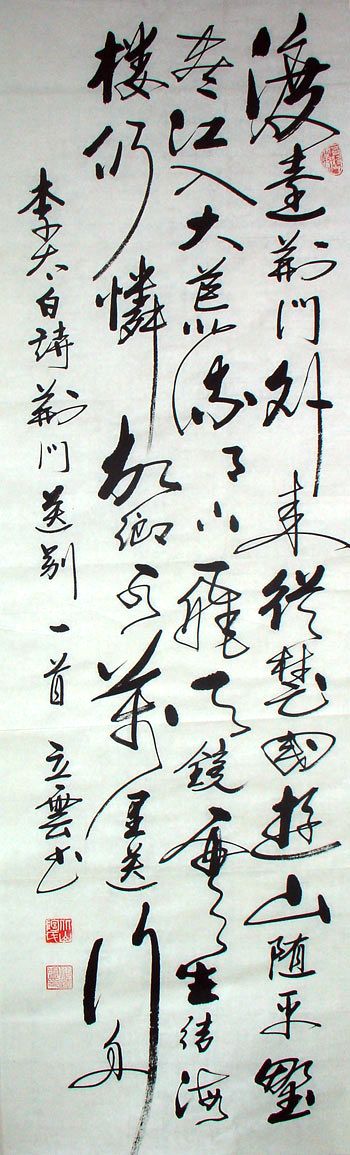 渡遠荆门外来從楚國遊山随平野
盡江入大荒流月下飛天鏡雲生结海
楼仍憐故鄉水萬里送行舟
李太白詩荆门送别一首 立雲书